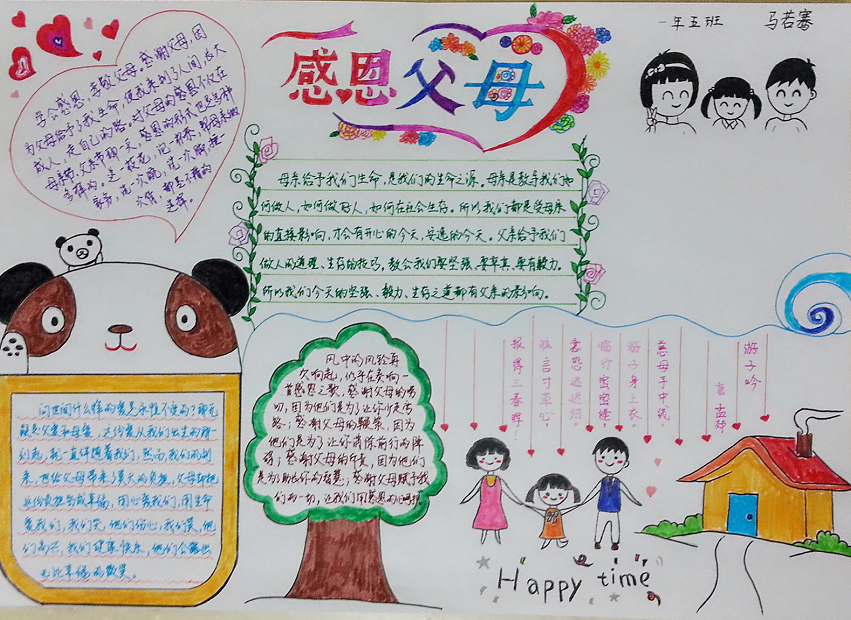 一年五班 马若骞
感恩父母
学会感恩，孝敬父母。感谢父母，因
为父母给予了我生命，使我来到了人间，长大
成人，走自己的路。对父母的感恩不仅在
母亲节，父亲节那一天，感恩的形式也是多种
多样的。送一枝花，记一
家务，洗一次碗，洗一次脚，捶
次背，都是不错的
选择。
母亲给予我们生命，是我们的生命之源。母亲是教导我们如
何做人，如何做好人，如何在社会生存。所以我们都是受母亲
的直接影响，才会有开心的今天，安逸的今天。父亲给予我们
做人的道理、生存的技巧，教会我们要坚强、要率真、要有毅力。
所以我们今天的坚强、毅力、生存之道都有父亲的影响。
问世间什么样的爱是永恒不变的？那无
疑是父爱和母爱，这份爱从我们出生的那一
刻起，就一直伴随着我们，然而，我们的到
来，也给父母带来了莫大的负担，父母却把
这份负担当成幸福，用心爱我们，用生命
爱我们，我们哭，他们伤心，我们笑，他
们高兴，我们健康快乐，他们会露出
无比幸福的微笑。
风中的风铃再
次响起，似乎在奏响一
首感恩之歌，感谢父母的唠
叨，因为他们是为了让你少走弯
路；感谢父母的鞭策，因为
他们是为了让你清除前行的障
碍；感谢父母的斥责，因为他们
是为了助长你的智慧；感谢父母赋予我
们的一切，让我们用感恩的心
游子吟
唐 孟郊
慈母手中线，
游子身上衣。
临行密密缝，
意恐迟迟归。
谁言寸草心，
报得三春晖！
Happy time